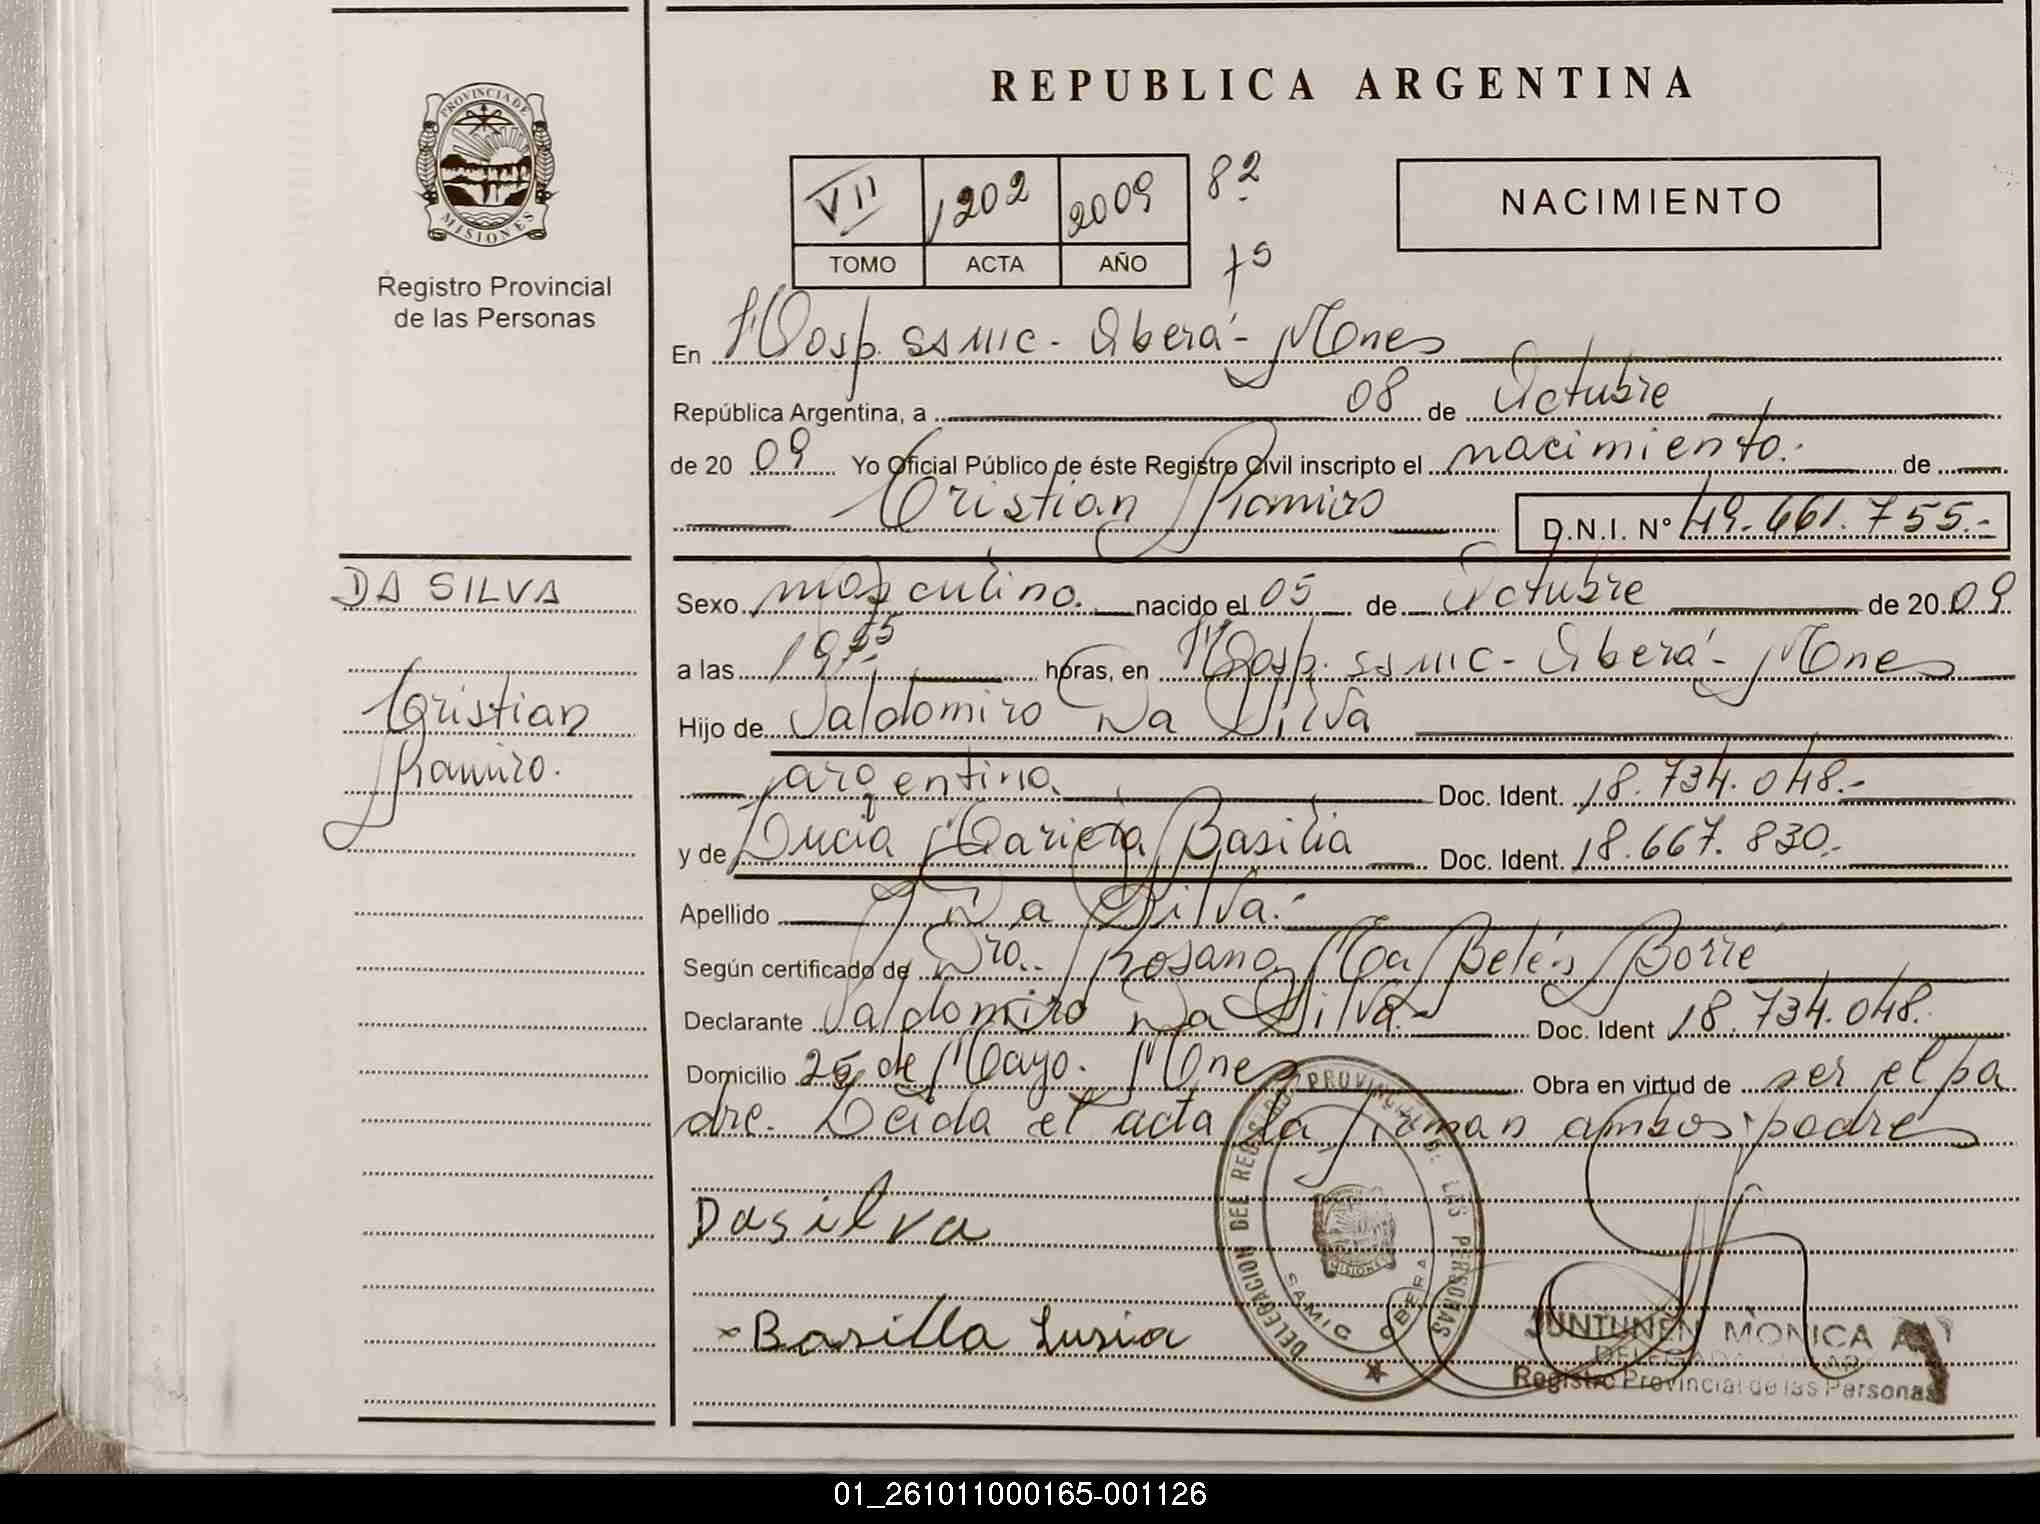 REPUBLICA ARGENTINA
PROVINCIA DE
MISIONES
Registro Provincial
de las Personas
VII 1202 2009 82
TOMO ACTA AÑO 75
NACIMIENTO
En Hosp. SAMIC - Oberá - Mnes
República Argentina, a 08 de Octubre
de 20 09 Yo Oficial Público de éste Registro Civil inscripto el nacimiento. de
Cristian Ramiro D.N.I. Nº 49.661.755.-
DA SILVA
Cristian
Ramiro.
Sexo masculino. nacido el 05 de Octubre de 20 09
a las 19, horas, en Hosp. SAMIC - Oberá - Mnes
Hijo de Valdomiro Da Silva
argentino. Doc. Ident. 18.734.048.-
y de Lucia Mariela Basilia Doc. Ident. 18.667.830.-
Apellido Da Silva.-
Según certificado de Dra. Rosana Ma Belén Borré
Declarante Valdomiro Da Silva.- Doc. Ident 18.734.048.
Domicilio 25 de Mayo. Mnes Obra en virtud de ser el pa
dre. Leida el acta la firman ambos padres
Dasilva
Basilla Lusia
DELEGACION DEL REGISTRO PROVINCIAL DE LAS PERSONAS
SAMIC OBERA
MISIONES
JUNTUNEN MONICA A.
DELEGADA
Registro Provincial de las Personas
01_261011000165-001126